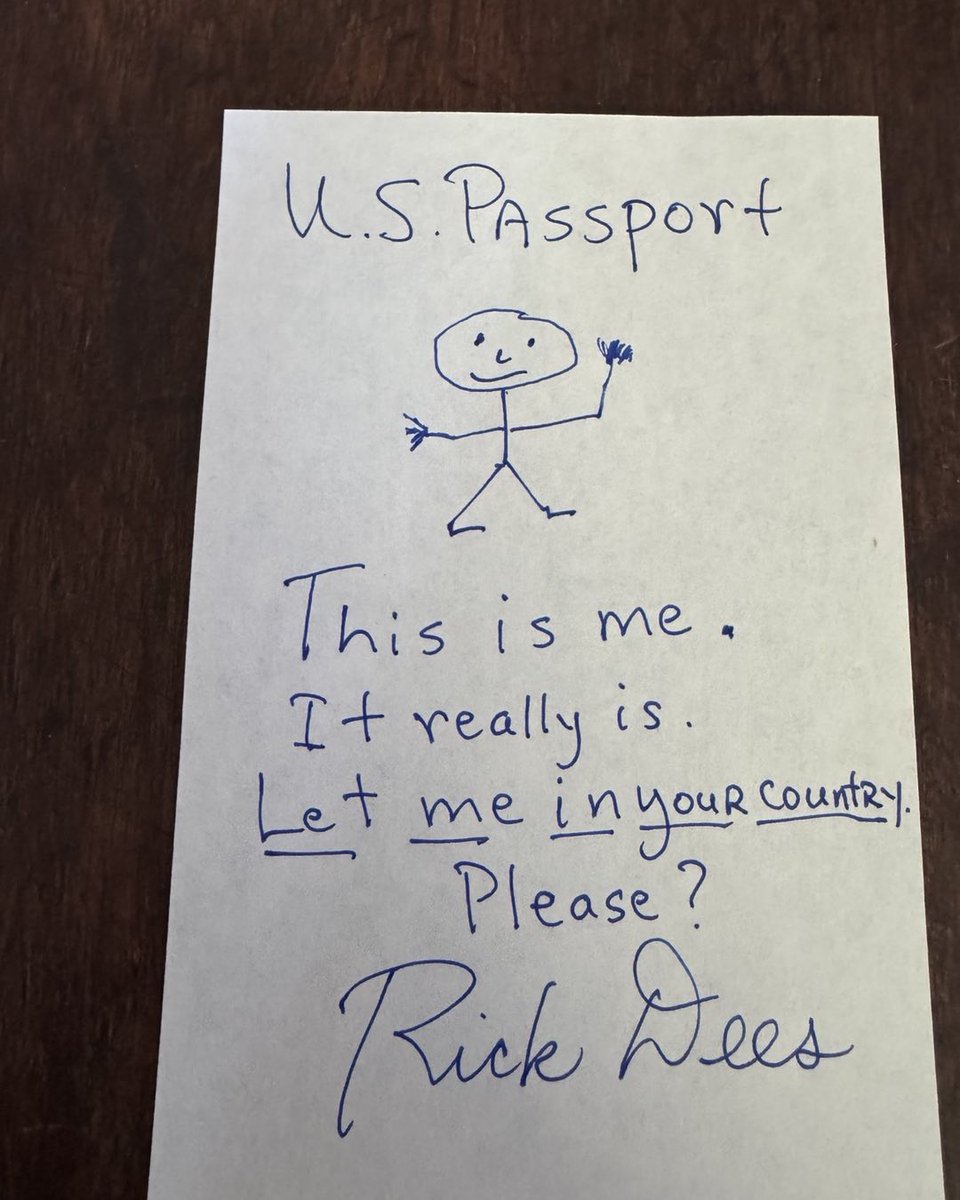 U.S. PAssport
This is me.
It really is.
Let me in youR countRy.
Please?
Rick Dees